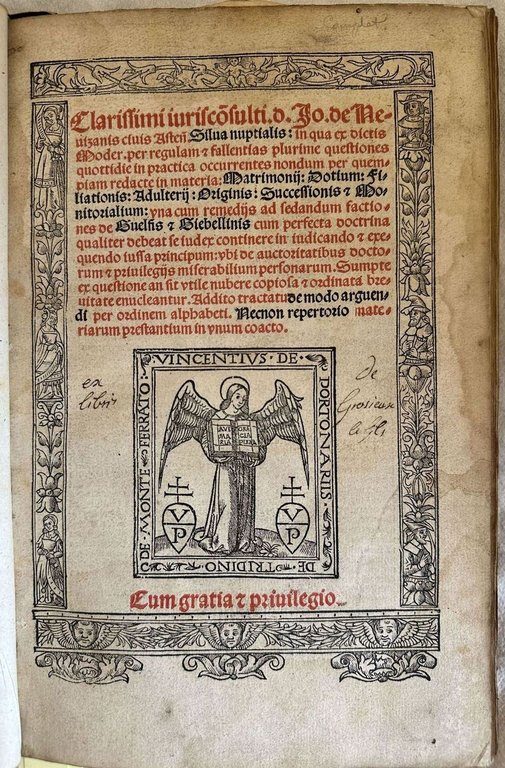 Complet
Clarissimi iuriscōsulti. d. Jo. de Ne-
uizanis ciuis Asteñ Silua nuptialis: In qua ex dictis
Moder. per regulam ⁊ fallentias plurime questiones
quottidie in practica occurrentes nondum per quem-
piam redacte in materia: Matrimonij: Dotium: Fi-
liationis: Adulterij: Originis: Successionis ⁊ Mo-
nitorialium: vna cum remedijs ad sedandum factio-
nes de Guelfis ⁊ Giebellinis cum perfecta doctrina
qualiter debeat se iudex continere in iudicando ⁊ exe-
quendo iussa principum: vbi de auctoritatibus docto-
rum ⁊ priuilegijs miserabilium personarum. Sumpte
ex questione an sit vtile nubere copiosa ⁊ ordinata bre-
uitate enucleantur. Addito tractatu de modo arguen-
di per ordinem alphabeti. Necnon repertorio mate-
riarum prestantium in vnum coacto.
VINCENTIVS · DE ·
PORTONARIIS ·
DE · TRIDINO
DE · MONTE · FERRATO ·
AVE
MA
RIA
GRA
CIA
PLENA
VP
VP
ex
libris
de
Cum gratia ⁊ priuilegio